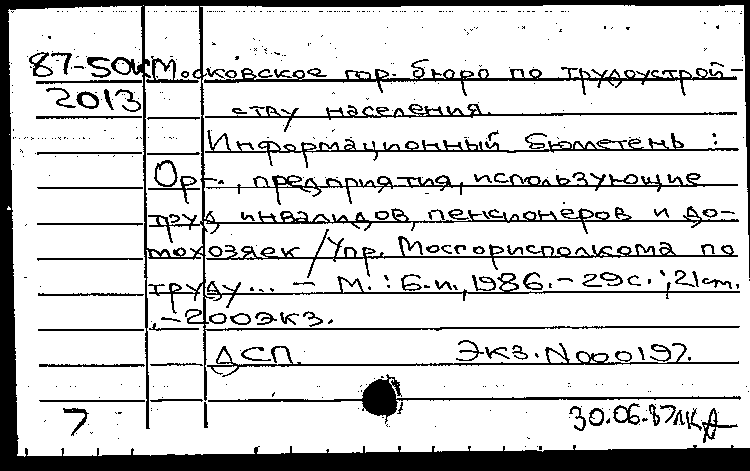 87-50к Московское гор. бюро по трудоустрой-
2013 ству населения.
Информационный бюллетень :
Орг., предприятия, использующие
труд инвалидов, пенсионеров и до-
мохозяек / Упр. Мосгорисполкома по
труду... – М. : Б.и., 1986. – 29с. ; 21см.
. – 200экз.
ДСП. Экз. N000197.
7 30.06.87